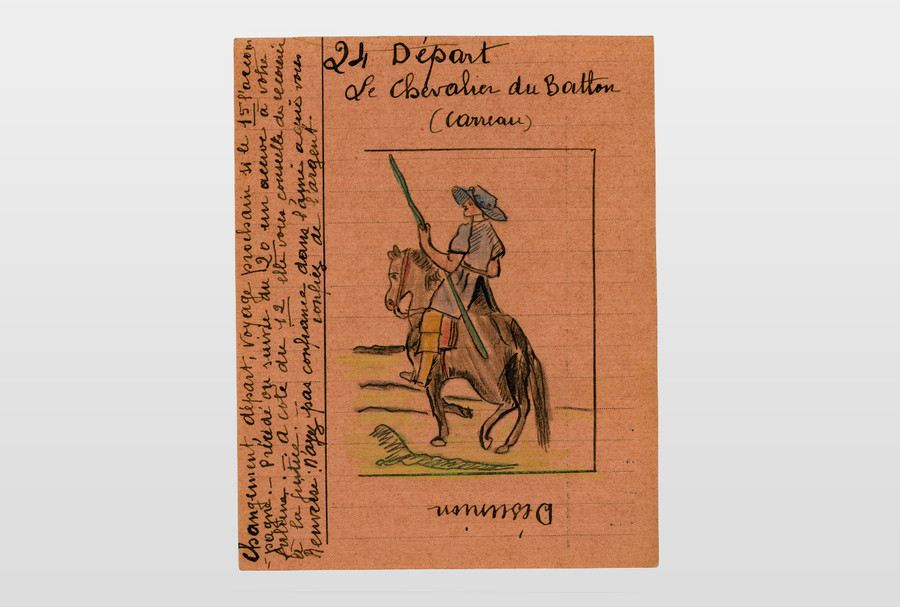 24 Départ
Le Chevalier du Batton
(Carreau)
Désunion
Changement départ, voyage prochain si le 15 l'accom
-pagne. – Précédé ou suivie du 20 un accroc à votre
fortune. – à coté du 12 elle vous conseille de recourir
à la justice. –
Renversé: N'ayez pas confiance dans l'ami à qui vous
confiez de l'argent